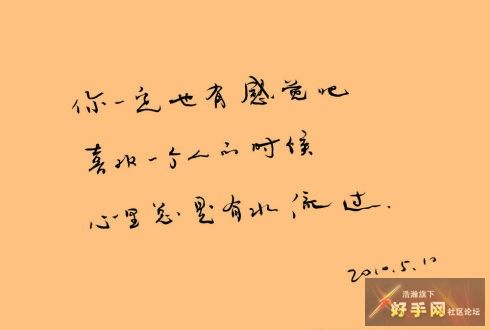 你一定也有感觉吧
喜欢一个人的时候
心里总是有水流过.
2010.5.10
浩瀚旗下
好手网社区论坛